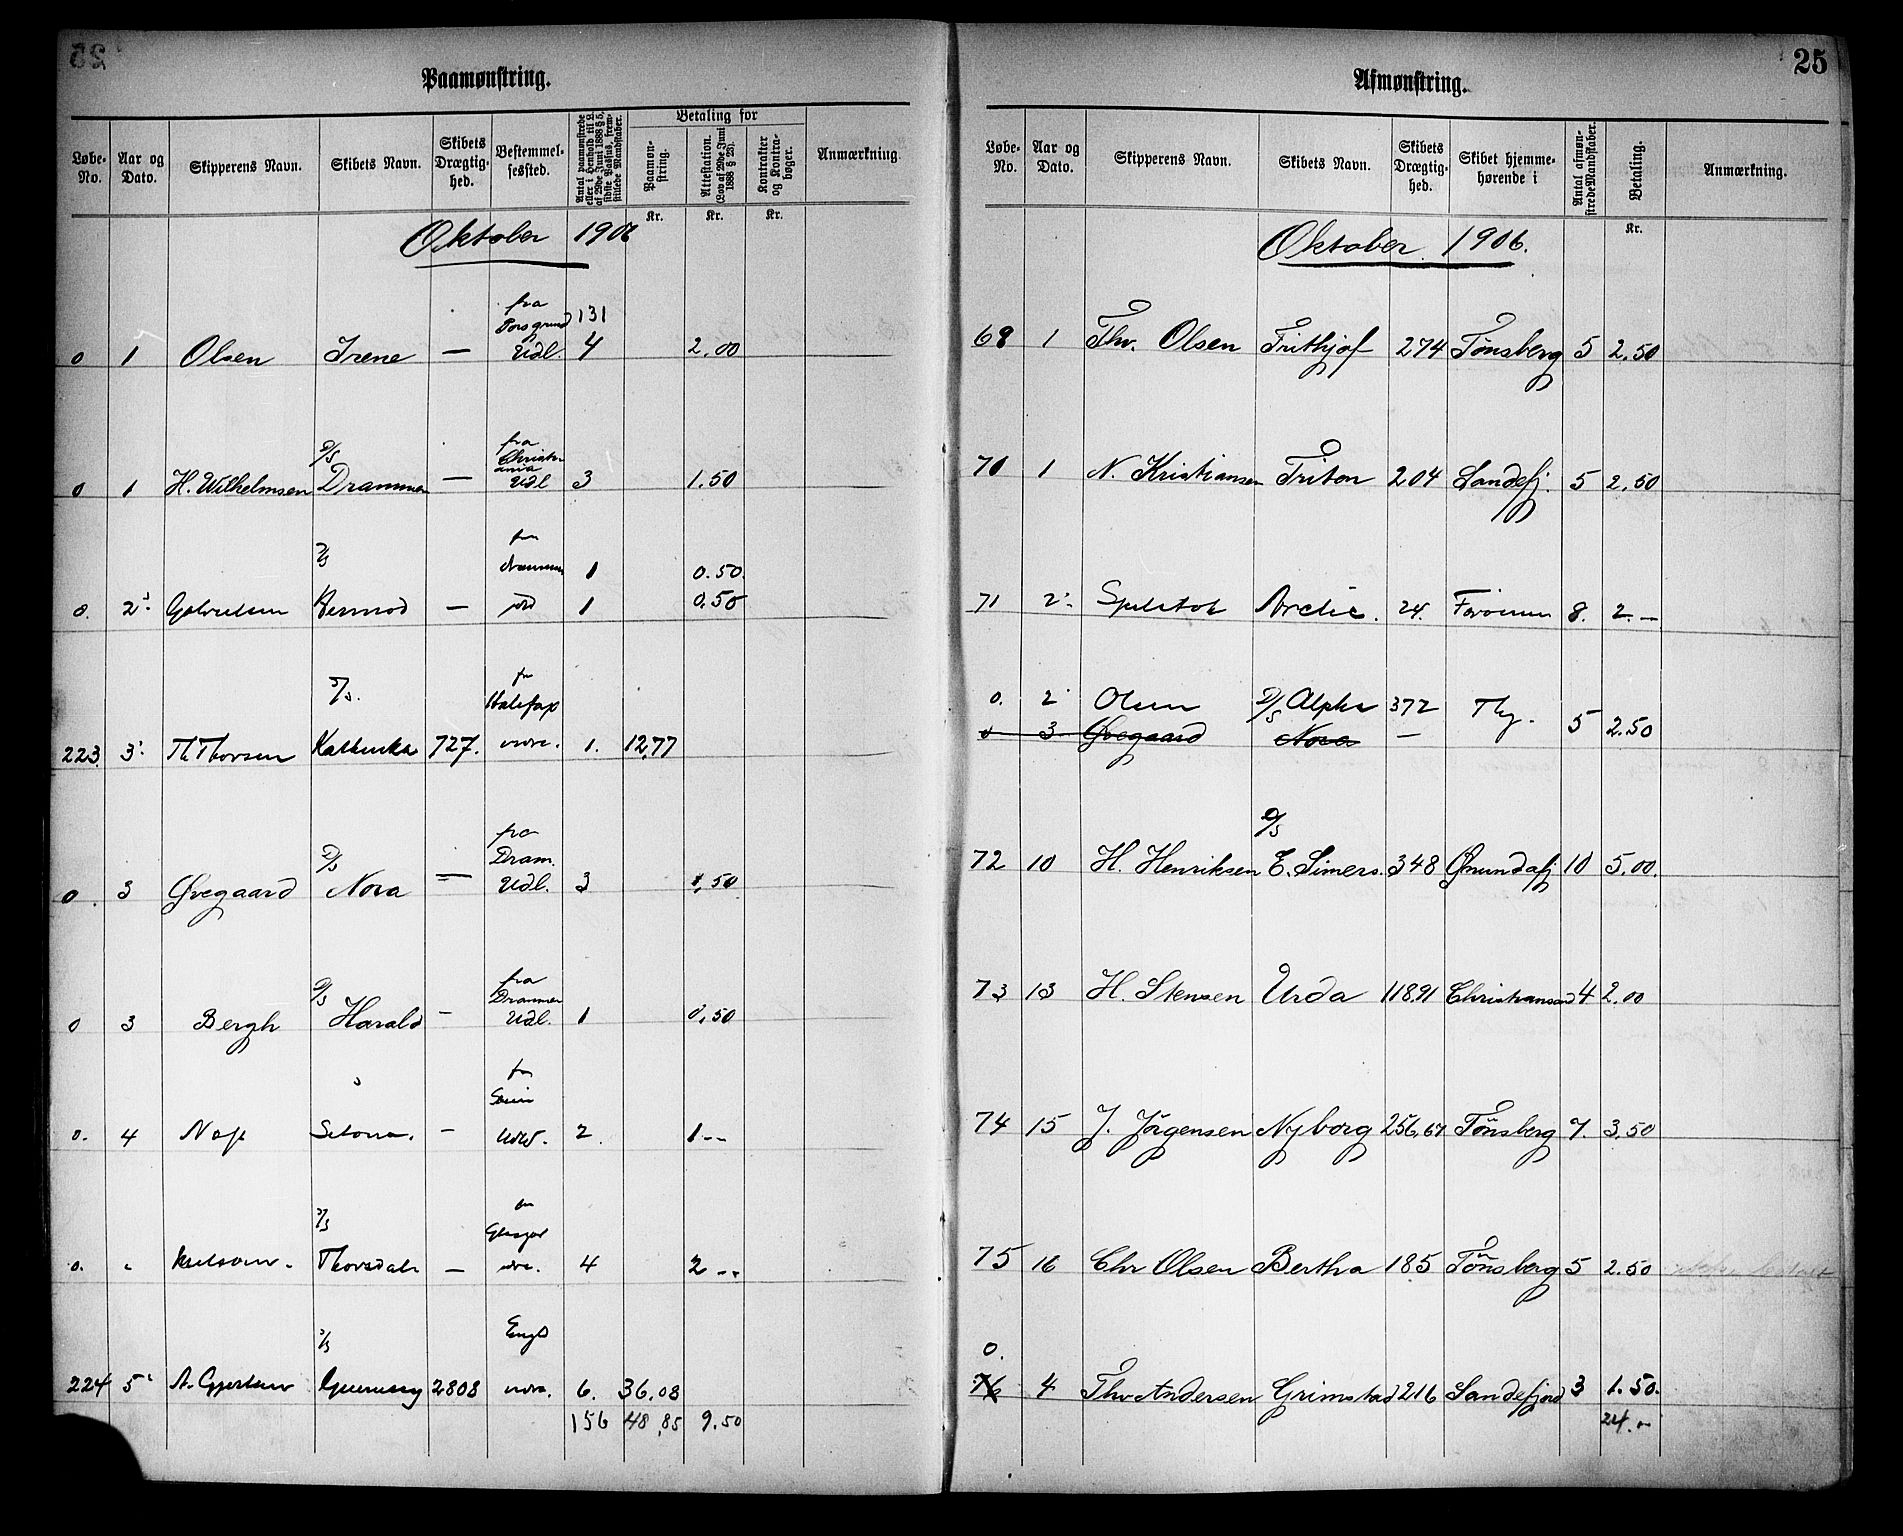 25
Paamønstring.
Løbe-No. Aar og Dato. Skipperens Navn. Skibets Navn. Skibets Drægtighed. Bestemmelsessted. Antal paamønstrede eller i Henhold til L. af 29de Juni 1888 § 5, sidste Passus, fremstillede Mandskaber. Betaling for Paamønstring. Attestation. (Lov af 29de Juni 1888 § 23). Kontrakter og Kontrabøger. Anmærkning
Kr. Kr. Kr.
Oktober 1906
fra
Porsgrund 131
0 1 Olsen Irene — Udl. 4 2,00
D/S fra Christiania
0 1 H. Wilhelmsen Drammen — Udl 3 1.50
D/S fra
Drammen 1 0.50.
0. 2' — 1 0,50
D/S. fr
Halifax
223 3' Th Thorsen 727. 1. 12,77
D/S fra
Dram.
0. 3 Øvegaard Nova — Udl. 3 1,50
D/S fra
Drammen
0 3 Bergh Harald — Udl. 1 0,50
fra
0. 4 — 2. 1--
D/S fra
0. " — 4 2--
D/S Engl
224 5' 2808 6. 36,08
156 48,85 9.50
25
Afmønstring.
Løbe-No. Aar og Dato. Skipperens Navn. Skibets Navn. Skibets Drægtighed. Skibet hjemmehørende i Antal afmønstrede Mandskaber. Betaling. Anmærkning.
Kr.
Oktober 1906.
69 1 Thv. Olsen Frithjof 274 Tönsberg 5 2.50
70 1 N. Kristiansen Triton 204 Sandefj. 5 2.50
71 2' Arctic. 24. 8. 2.—
0. 2' Olsen D/S Alpha 372 5 2.50
0 3 Øvegaard Nova —
D/S
72 10 H. Henriksen E. Simers. 348 10 5.00.
73 13 H. Stensen Urda 118.91 Christiansand 4 2.00
74 15 J. Jörgensen Nyborg 256,67 Tönsberg 7. 3,50
75 16 Chr Olsen Bertha 185 Tönsberg 5 2.50
0.
76 4 Thv Andersen Grimstad 216 Sandefjord 3 1.50.
24.—